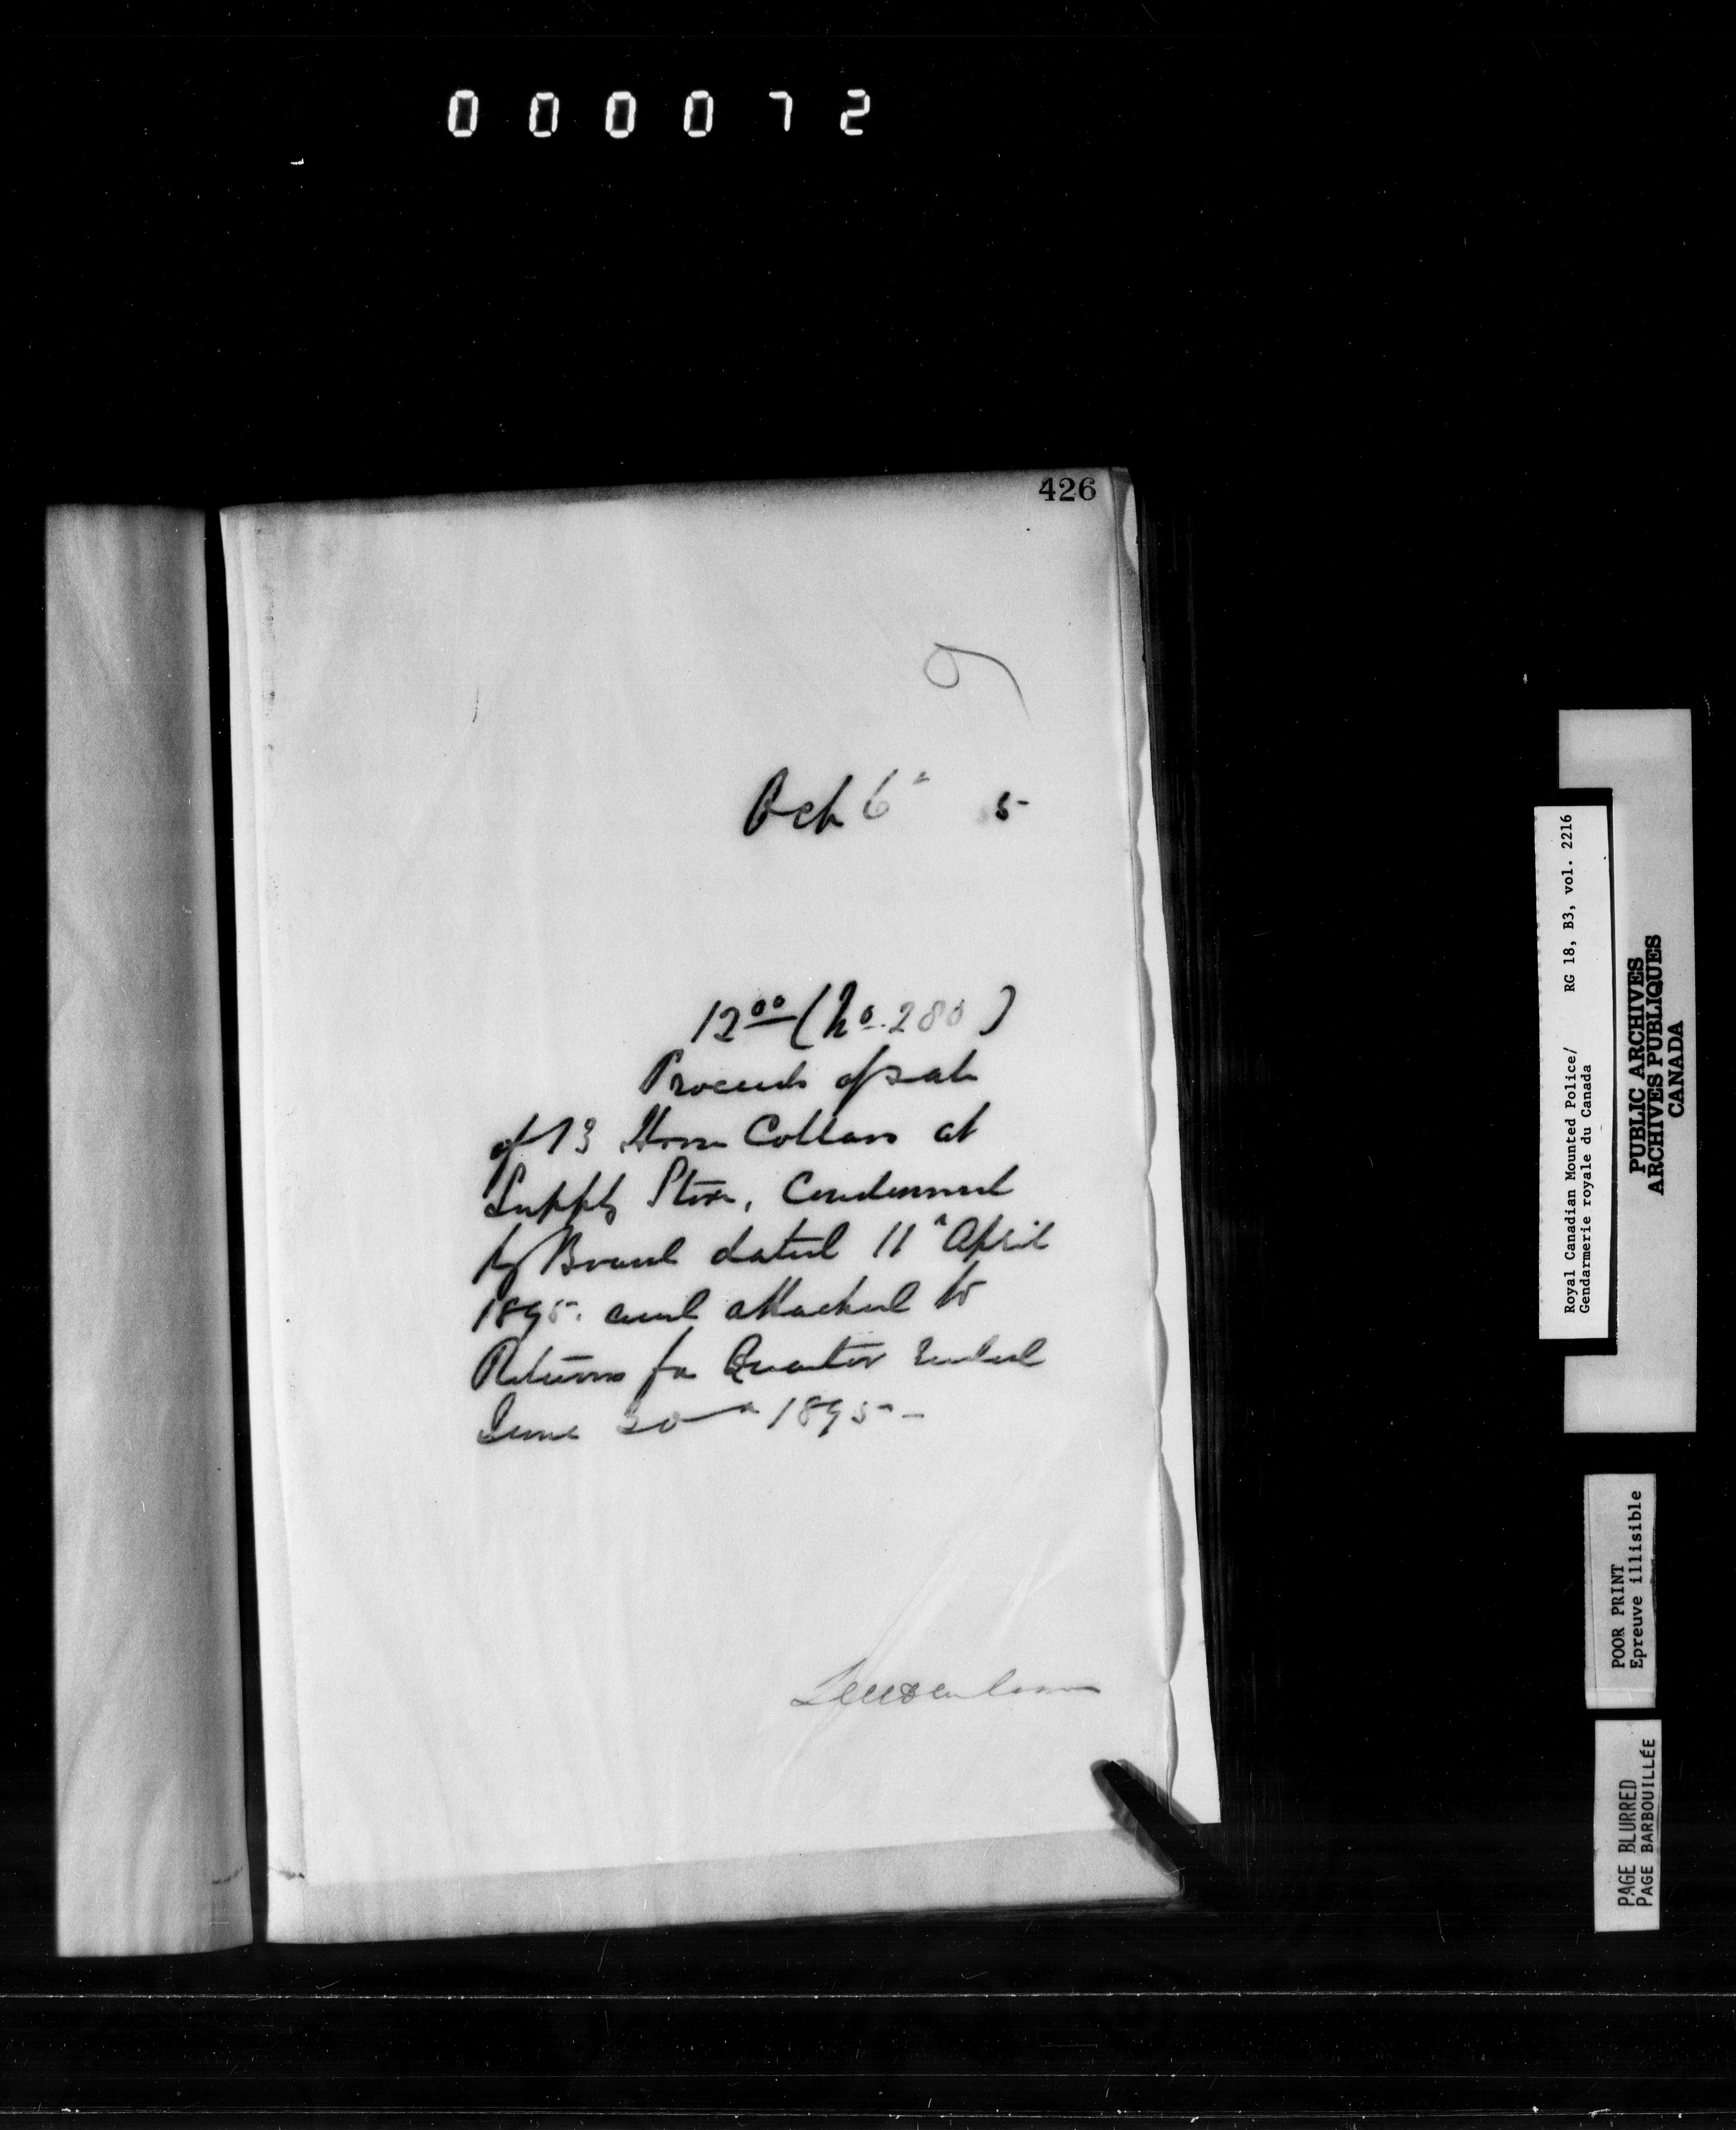 000072
426
Oct 6" 5
12 00 (No. 280)
Proceeds of sale
of 13 Horse Collars at
Supply Store, Condemned
by Board dated 11" April
1895. and attached to
Returns for Quarter Ended
June 30th 1895 -
Royal Canadian Mounted Police/ RG 18, B3, vol. 2216
Gendarmerie royale du Canada
PUBLIC ARCHIVES
ARCHIVES PUBLIQUES
CANADA
POOR PRINT
Epreuve illisible
PAGE BLURRED
PAGE BARBOUILLÉE